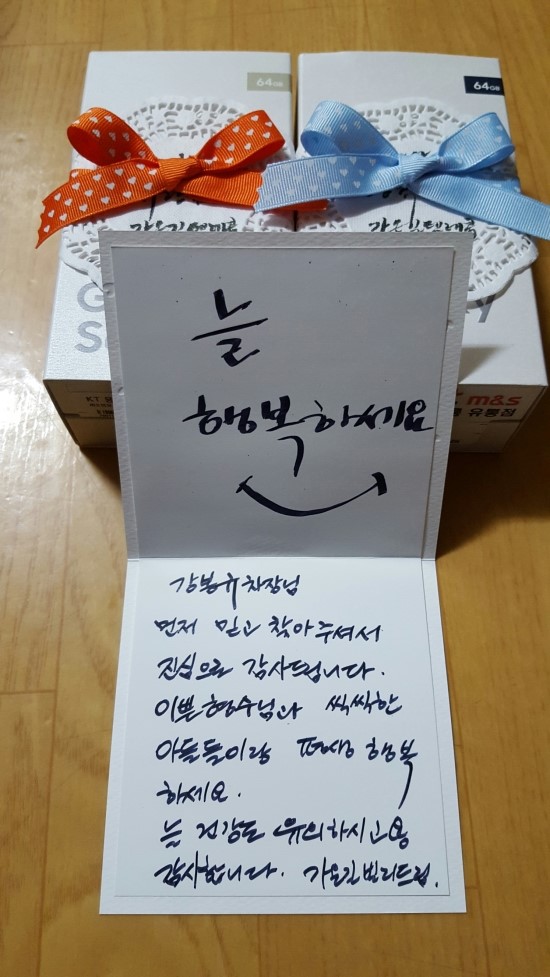 64GB
64GB
KT
m&s
유통점
늘
행복하세요
강봉규차장님
먼저 믿고 찾아주셔서
진심으로 감사드립니다.
이쁜형수님과 씩씩한
아들들이랑 평생 행복
하세요.
늘 건강도 유의하시고용
감사합니다. 가온길빌리드림.